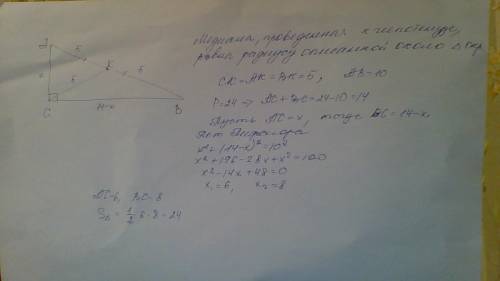 Медиана, проведенная к гипотенузе,
равна радиусу описанной около
CK=AK=BK=5; AB=10
P=24 → AC+BC=24-10=14
Пусть AC=x, тогда BC=14-x
Пифагора
x²+(14-x)²=10²
x²+196-28x+x²=100
x²-14x+48=0
x₁=6, x₂=8
5
5
5
C
14-x
B
AC=6, BC=8
S = 1/2 6·8=24